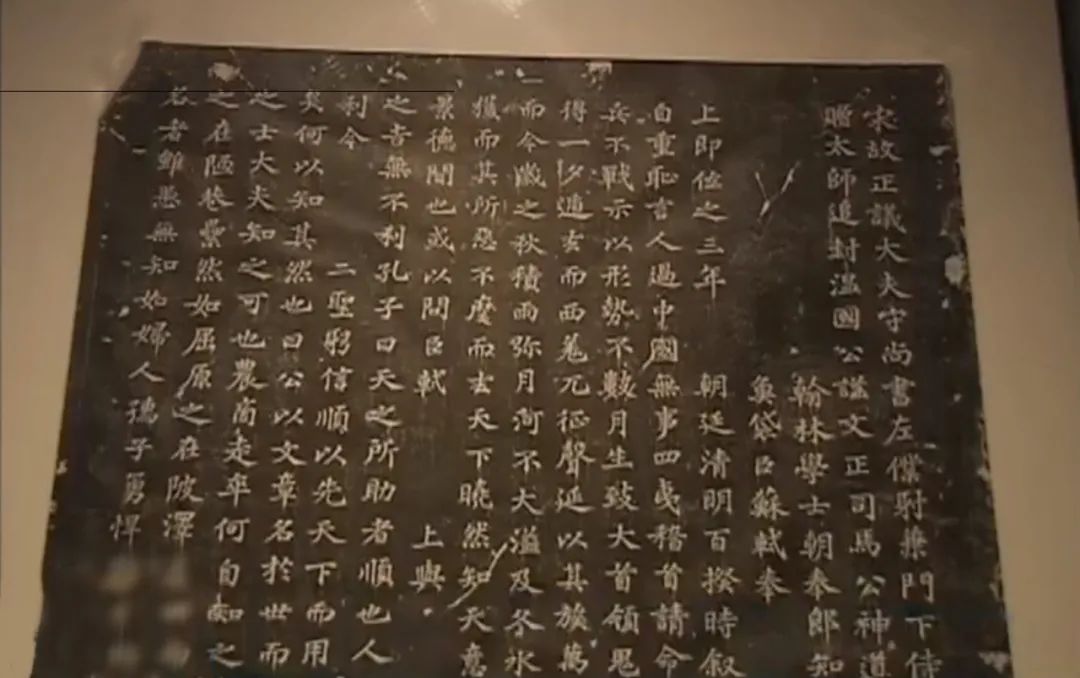 宋故正議大夫守尚書左僕射兼門下侍
贈太師追封溫國公諡文正司馬公神道
翰林學士朝奉郎知
魚袋臣蘇軾奉
上即位之三年 朝廷清明百揆時敘
自重恥言人過中國無事四夷稽首請命
兵不戰示以形勢不數月生致大首領鬼
得一夕遁去而西羗兀征聲延以其族萬
而今歲之秋積雨弥月河不大溢及冬水
獲而其所惡不麾而去天下曉然知天意
景德間也或以問臣軾 上與
之吉無不利孔子曰天之所助者順也人
利今 二聖躬信順以先天下而用
矣何以知其然也曰公以文章名於世而
之士大夫知之可也農商走卒何自知之
之在陋巷纍然如屈原之在陂澤
名者雖愚無知如婦人孺子勇悍